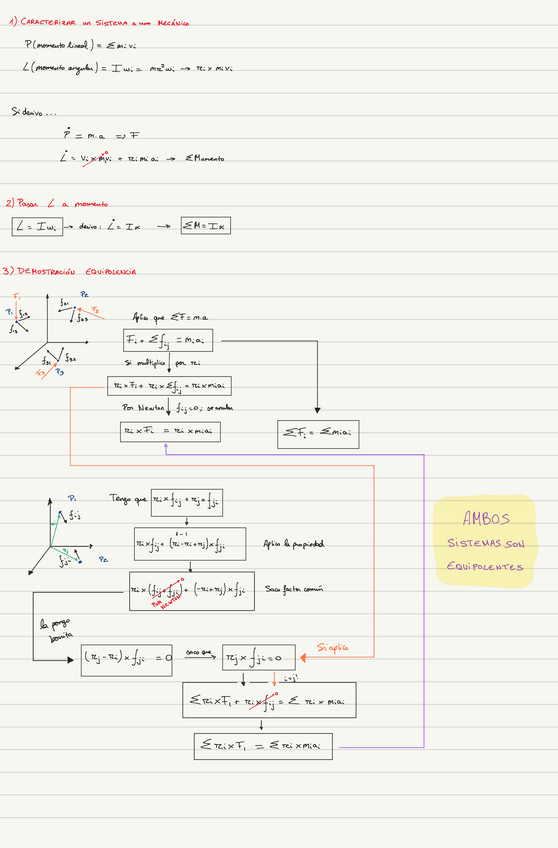 1) CARACTERIZAR un SISTEMA a uno MECÁNICO
P (momento lineal) = Σ mi vi
L (momento angular) = I wi = mr² wi → ri x mi vi
Si derivo ...
Ṗ = m.a => F
L̇ = vi x mi vi 0 + ri mi ai → Σ Momento
2) Pasar L a momento
L = I wi → derivo: L̇ = I α → ΣM = I α
3) DEMOSTRACIÓN EQUIPOLENCIA
F1 P1 f12 f13 f21 P2 F2 f23 f31 f32 P3 F3
Aplico que ΣF = m.a
Fi + Σ fij = mi ai
Si multiplico por ri
ri x Fi + ri x Σ fij = ri x mi ai
Por Newton fij = 0; se anulan
ri x Fi = ri x mi ai
Σ Fi = Σ mi ai
P1 fij fji P2
Tengo que ri x fij + rj x fji
ri x fij + (ri - ri + rj) x fji
Aplico la propiedad
ri x (fij + fji) 0 + (-ri + rj) x fji
POR NEWTON
Saco factor común
la pongo
bonita
(rj - ri) x fji = 0 saco que → rj x fji = 0
Si aplico
i + j!
Σ ri x Fi + ri x fij 0 = Σ ri x mi ai
Σ ri x Fi = Σ ri x mi ai
AMBOS
SISTEMAS SON
EQUIPOLENTES